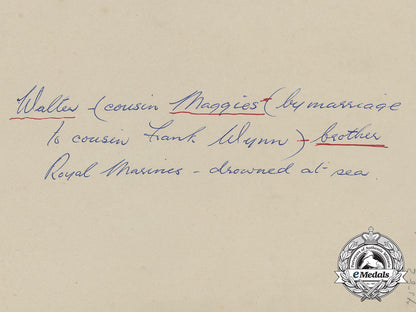 Walter - (cousin Maggies (by marriage
to cousin Frank Wynn) - brother
Royal Marines - drowned at sea.
eMedals